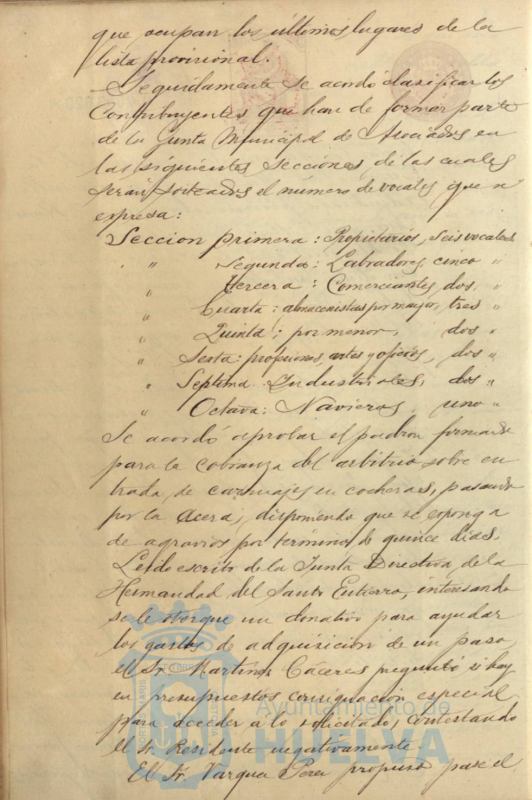 que ocupan los últimos lugares de la
lista provisional.
Seguidamente se acordó clasificar los
Contribuyentes que han de formar parte
de la Junta Municipal de Asociados en
las siguientes secciones de las cuales
serán sorteados el número de vocales que se
expresa:
Seccion primera: Propietarios, seis vocales
" Segunda: Labradores, cinco "
" tercera: Comerciantes, dos, "
" Cuarta: almacenistas por mayor, tres "
" Quinta; por menor, dos "
" Sesta: profesiones, artes y oficios, dos "
" Septima. Industriales, dos "
" Octava: Navieros, uno "
Se acordó aprobar el padron formado
para la cobranza del arbitrio sobre en
trada, de carruajes en cocheras, pasando
por la acera, disponiendo que se esponga
de agravios por término de quince dias.
Leido escrito de la Junta Directiva de la
Hermandad del Santo Entierro, interesando
se le otorgue un donativo para ayudar
los gastos de adquisicion de un paso,
el Sr. Martinez Cáceres preguntó si hay
en presupuestos consignacion especial
para acceder a lo solicitado, contestando
el Sr. Presidente negativamente.
El Sr. Perez propuso pase el
Ayuntamiento de
HUELVA